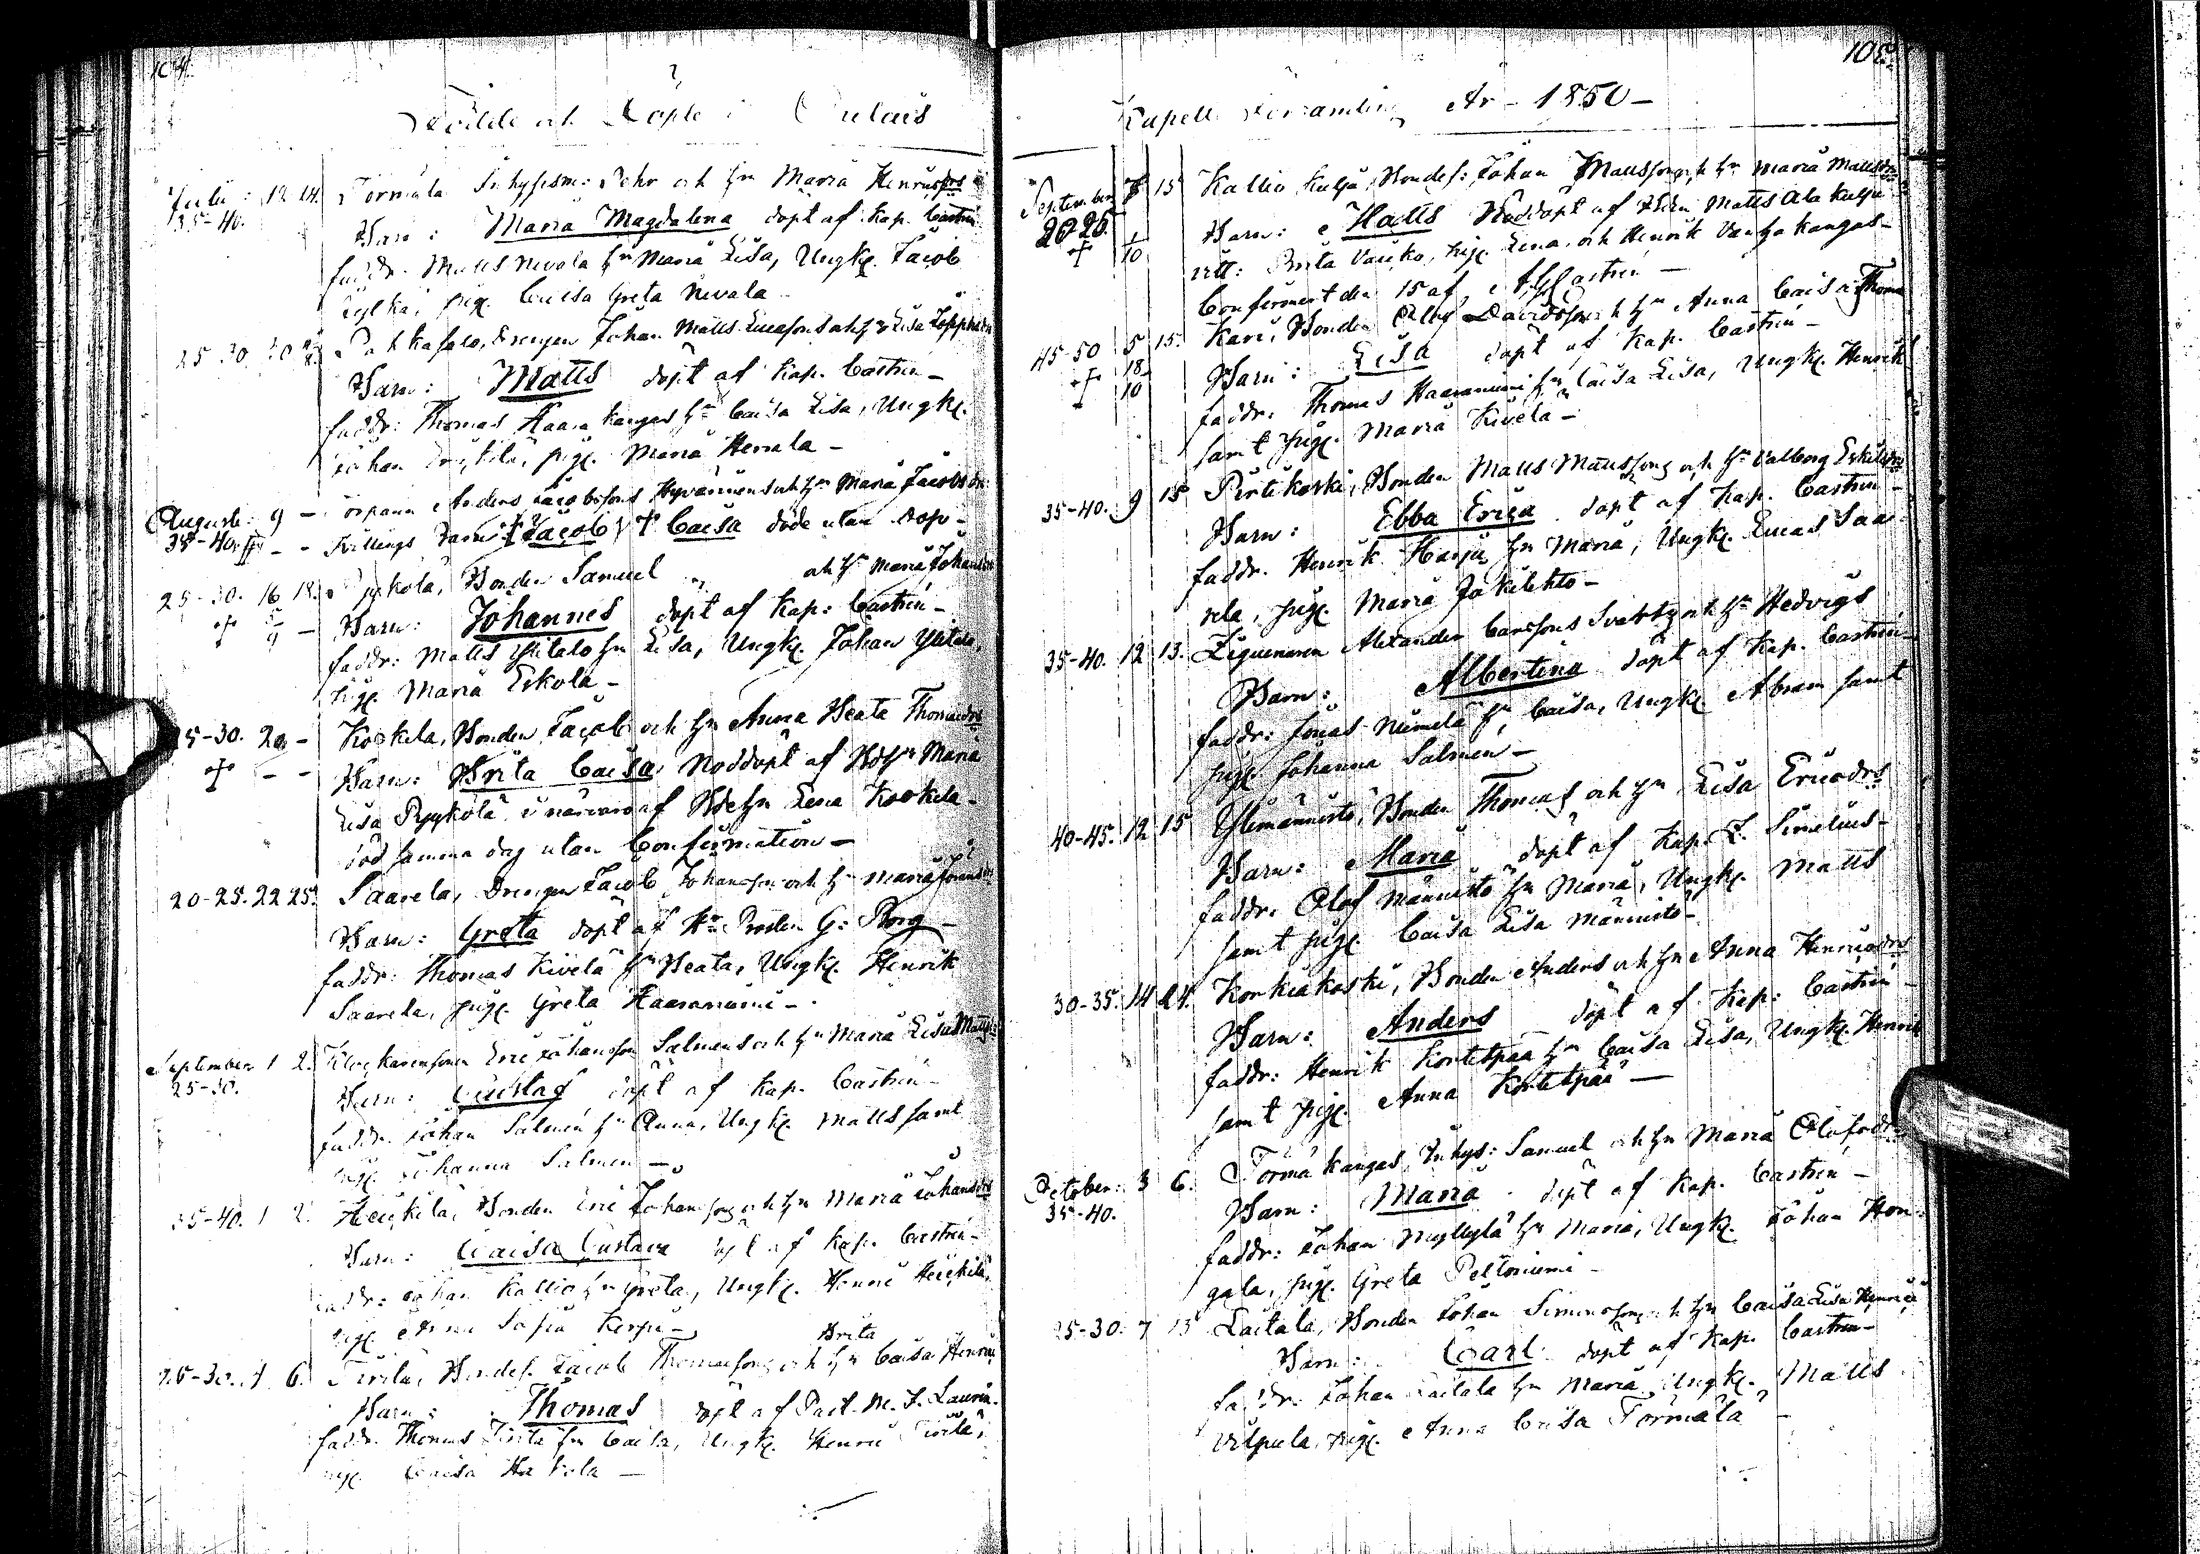 104.
Födde och Döpte i Oulais
Julii: 12 14. Törmälä Inhysesm: Pehr och hu Maria Henricsdrs
35-40. Barn: Maria Magdalena döpt af Kap. Castrén
faddr. Matts Nivala hu Maria Lisa, Ungk. Jacob
pig. Caisa Greta Nivala
25-30 30 Drengen Johan Matts och hu Lisa
Barn: Matts döpt af Kap. Castrén -
faddr: Thomas Haarakangas hu Caisa Lisa, Ungk.
Johan pig. Maria Herrala -
Augusti: 9 - Anders Jacobssons Hyvärinens och hu Maria Jacobsdr
35-40. - - Tvillings Barn: † Jacob, † Caisa döde utan dop -
25-30. 16 18. Pyykölä, Bonden Samuel och hu Maria Johansdr
† 9 - Barn: Johannes döpt af Kap: Castrén -
faddr: Matts Ylitalo hu Lisa, Ungk. Johan Ylitalo,
pig. Maria Eskola -
25-30. 20 - Koskela, Bonden Jacob och hu Anna Beata Thomasdrs
† - - Barn: Brita Caisa Nöddöpt af Bdhu Maria
Lisa Pyykölä i närvaro af Bdehu Lena Koskela -
död samma dag utan Confirmation -
20-25. 22 25. Saarela, Drengen Jacob Johansson och hu Maria
Barn: Greta döpt af Hr Prosten G: Borg -
faddr: Thomas Kivelä hu Beata, Ungk. Henrik
Saarela, pig. Greta Haaraniemi -
September 1 2. Klockaresonen Eric Johansson Salmens och hu Maria Lisa Mattsdr
25-30. Barn: Gustaf döpt af Kap. Castrén -
faddr. Johan Salmén hu Anna, Ungk. Matts samt
pig. Johanna Salmén -
35-40. 1 2. Heickilä, Bonden Eric Johansson och hu Maria Johansdrs
Barn: Caisa Gustava döpt af Kap. Castrén -
faddr: Johan Kallio hu Greta, Ungk. Henric Heickilä,
pig. Anna Sofia -
Brita
25-30. 4 6. Bondes. Jacob Thomasson och hu Caisa
Barn: Thomas döpt af Past. M. J. Laurin.
faddr. Thomas hu Caisa, Ungk. Henric
pig. Caisa -
105.
Kapell Församling År - 1850 -
September 7 15 Kallio Kulju, Bondes: Johan Mattsson och hu Maria Mattsdr
20-25 Barn: Matts Nöddöpt af Bden Matts Ala Kulju
† 10 vitt: Brita pig. Lena och Henrik Vanhakangas -
Confirmert den 15 af Castrén -
45-50 5 15. Kari, Bonden Olof Davidsson och hu Anna Caisa Thoms
† 18 Barn: Lisa döpt af Kap. Castrén -
10 faddr. Thomas Haaraniemi hu Caisa Lisa, Ungk. Henrik
samt pig. Maria Kivelä -
35-40. 9 15 Pirtikoski, Bonden Matts Mattsson och hu Valborg Eskilsdr
Barn: Ebba Erica döpt af Kap. Castrén -
faddr. Henrik Harju hu Maria, Ungk. Lucas Saa-
rela, pig. Maria Jokilehto -
35-40. 12 13. Ziguenaren Alexander Carlssons Svart och hu Hedvigs
Barn: Albertina döpt af Kap. Castrén -
faddr: Jonas Niemelä hu Caisa, Ungk. Abram samt
pig. Johanna Salmén -
40-45. 12 15 Ylimännistö, Bonden Thomas och hu Lisa Ericsdrs
Barn: Maria döpt af Kap. Z. Sirelius -
faddr. Olof Männistö hu Maria, Ungk. Matts
samt pig. Caisa Lisa Männistö -
30-35. 14 24. Korkiakoski, Bonden Anders och hu Anna Henricsdrs
Barn: Anders döpt af Kap: Castrén -
faddr: Henrik Kortetpää hu Caisa Lisa, Ungk. Henrik
samt pig. Anna Kortetpää -
October: 3 6. Törmäkangas, Inhys: Samuel och hu Maria Olofsdr
35-40. Barn: Maria döpt af Kap. Castrén -
faddr: Johan Myllylä hu Maria, Ungk. Johan Hon-
gala, pig. Greta Peltoniemi -
25-30. 7 13 Laitala, Bonden Johan Simonsson och hu Caisa Lisa Henrics
Barn: Carl döpt af Kap. Castrén -
faddr. Johan Laitala hu Maria, Ungk. Matts
Vilpula, pig. Anna Caisa Törmälä -